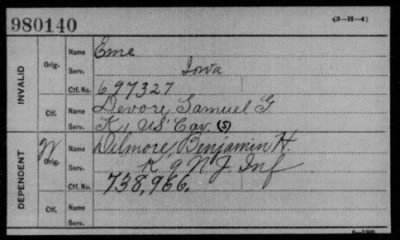 980140
(3-H-4)
INVALID
Orig.
Name Eme
Serv. Iowa
Ctf. No. 697327
Ctf.
Name Devore, Samuel G.
Serv. K, 1, US Cav. (S)
DEPENDENT
W
Orig.
Name Dilmore, Benjamin H.
Serv. K 9 N J. Inf
Ctf. No. 738,966.
Ctf.
Name
Serv.